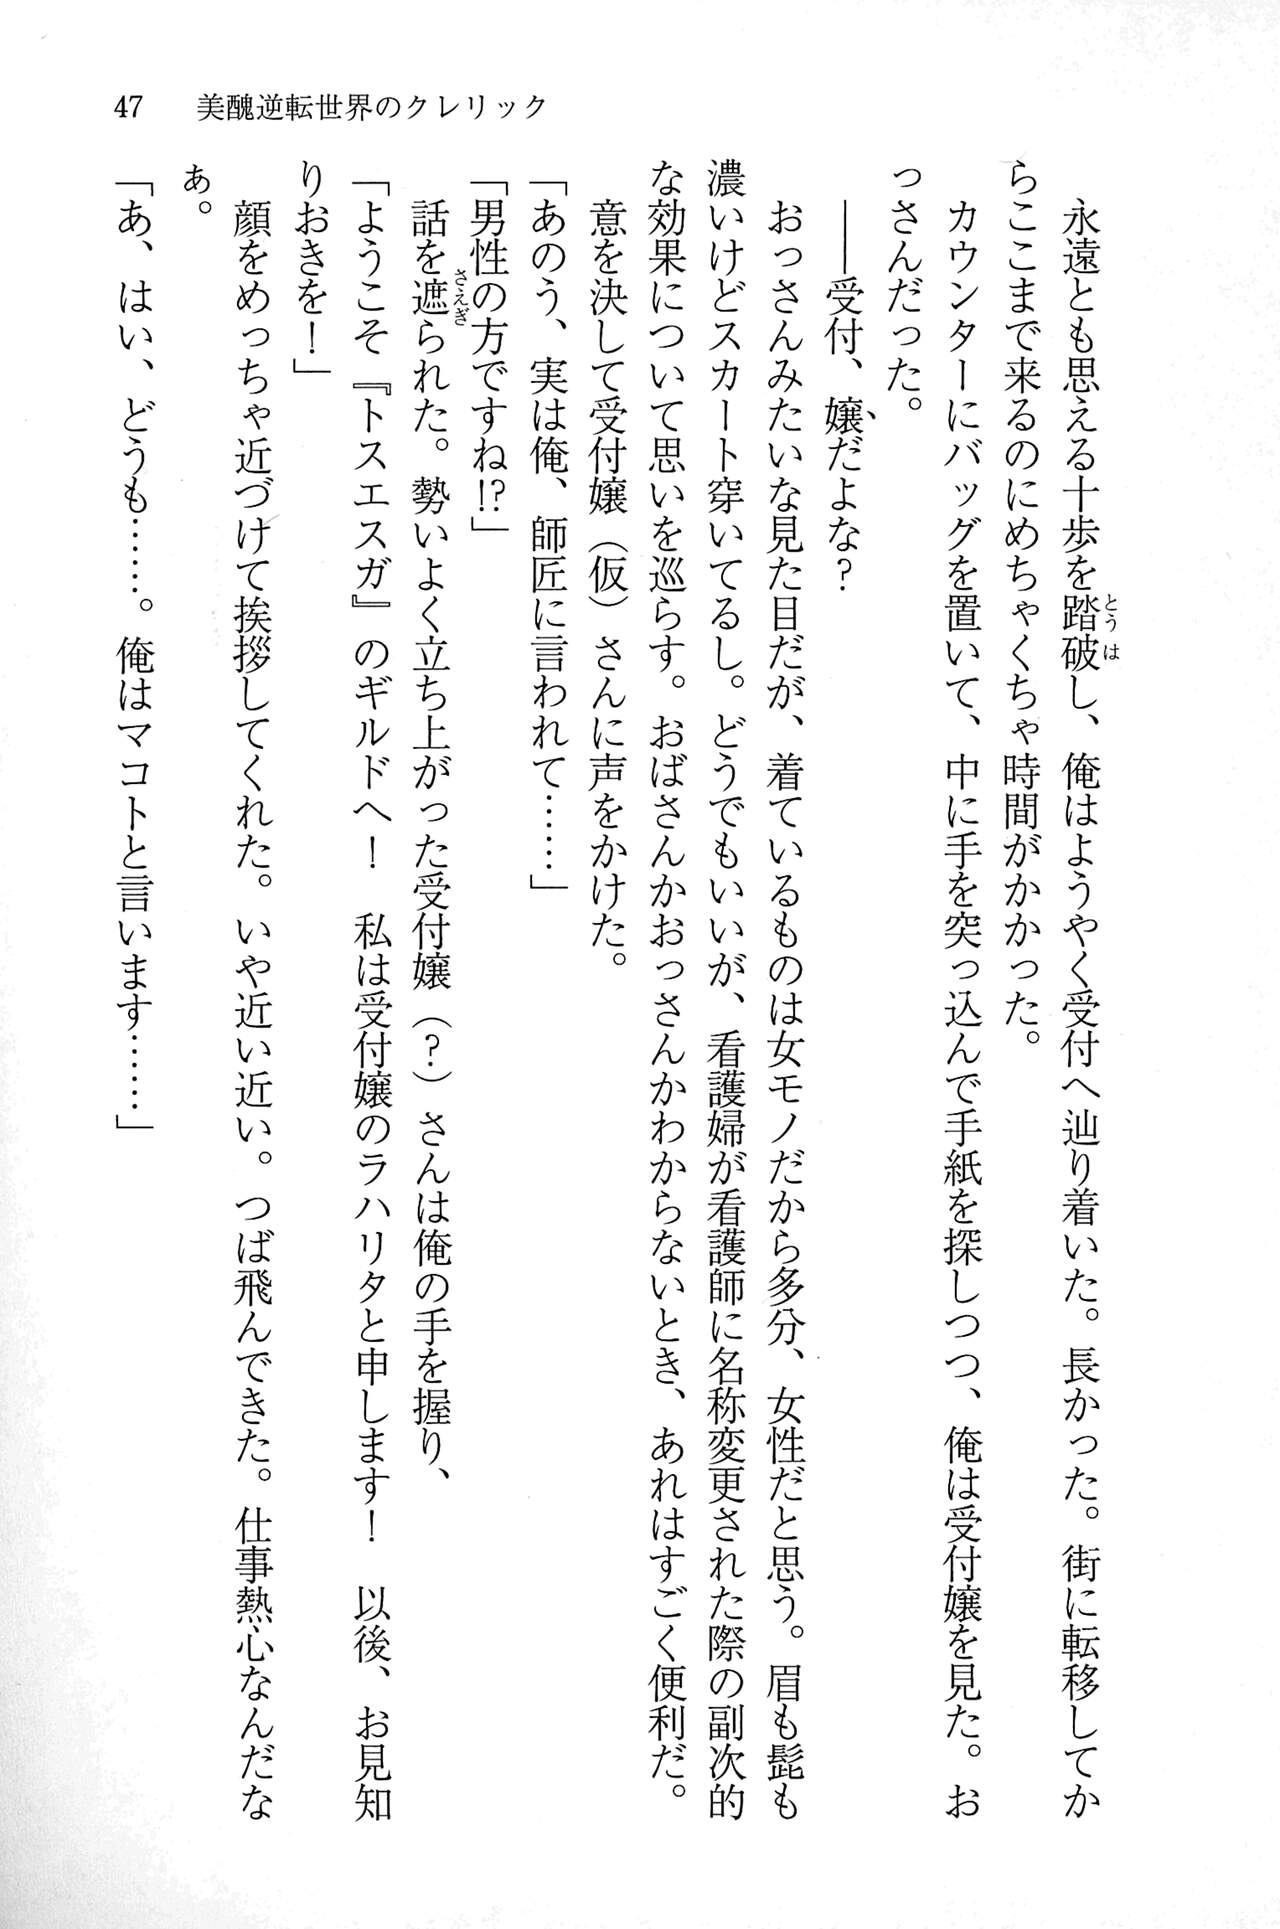 47　美醜逆転世界のクレリック
　永遠とも思える十歩を踏破し、俺はようやく受付へ辿り着いた。長かった。街に転移してか
らここまで来るのにめちゃくちゃ時間がかかった。
　カウンターにバッグを置いて、中に手を突っ込んで手紙を探しつつ、俺は受付嬢を見た。お
っさんだった。
　――受付、嬢だよな？
　おっさんみたいな見た目だが、着ているものは女モノだから多分、女性だと思う。眉も髭も
濃いけどスカート穿いてるし。どうでもいいが、看護婦が看護師に名称変更された際の副次的
な効果について思いを巡らす。おばさんかおっさんかわからないとき、あれはすごく便利だ。
　意を決して受付嬢（仮）さんに声をかけた。
「あのう、実は俺、師匠に言われて……」
「男性の方ですね!?」
　話を遮られた。勢いよく立ち上がった受付嬢（？）さんは俺の手を握り、
「ようこそ『トスエスガ』のギルドへ！　私は受付嬢のラハリタと申します！　以後、お見知
りおきを！」
　顔をめっちゃ近づけて挨拶してくれた。いや近い近い。つば飛んできた。仕事熱心なんだな
ぁ。
「あ、はい、どうも……。俺はマコトと言います……」
とうは
さえぎ